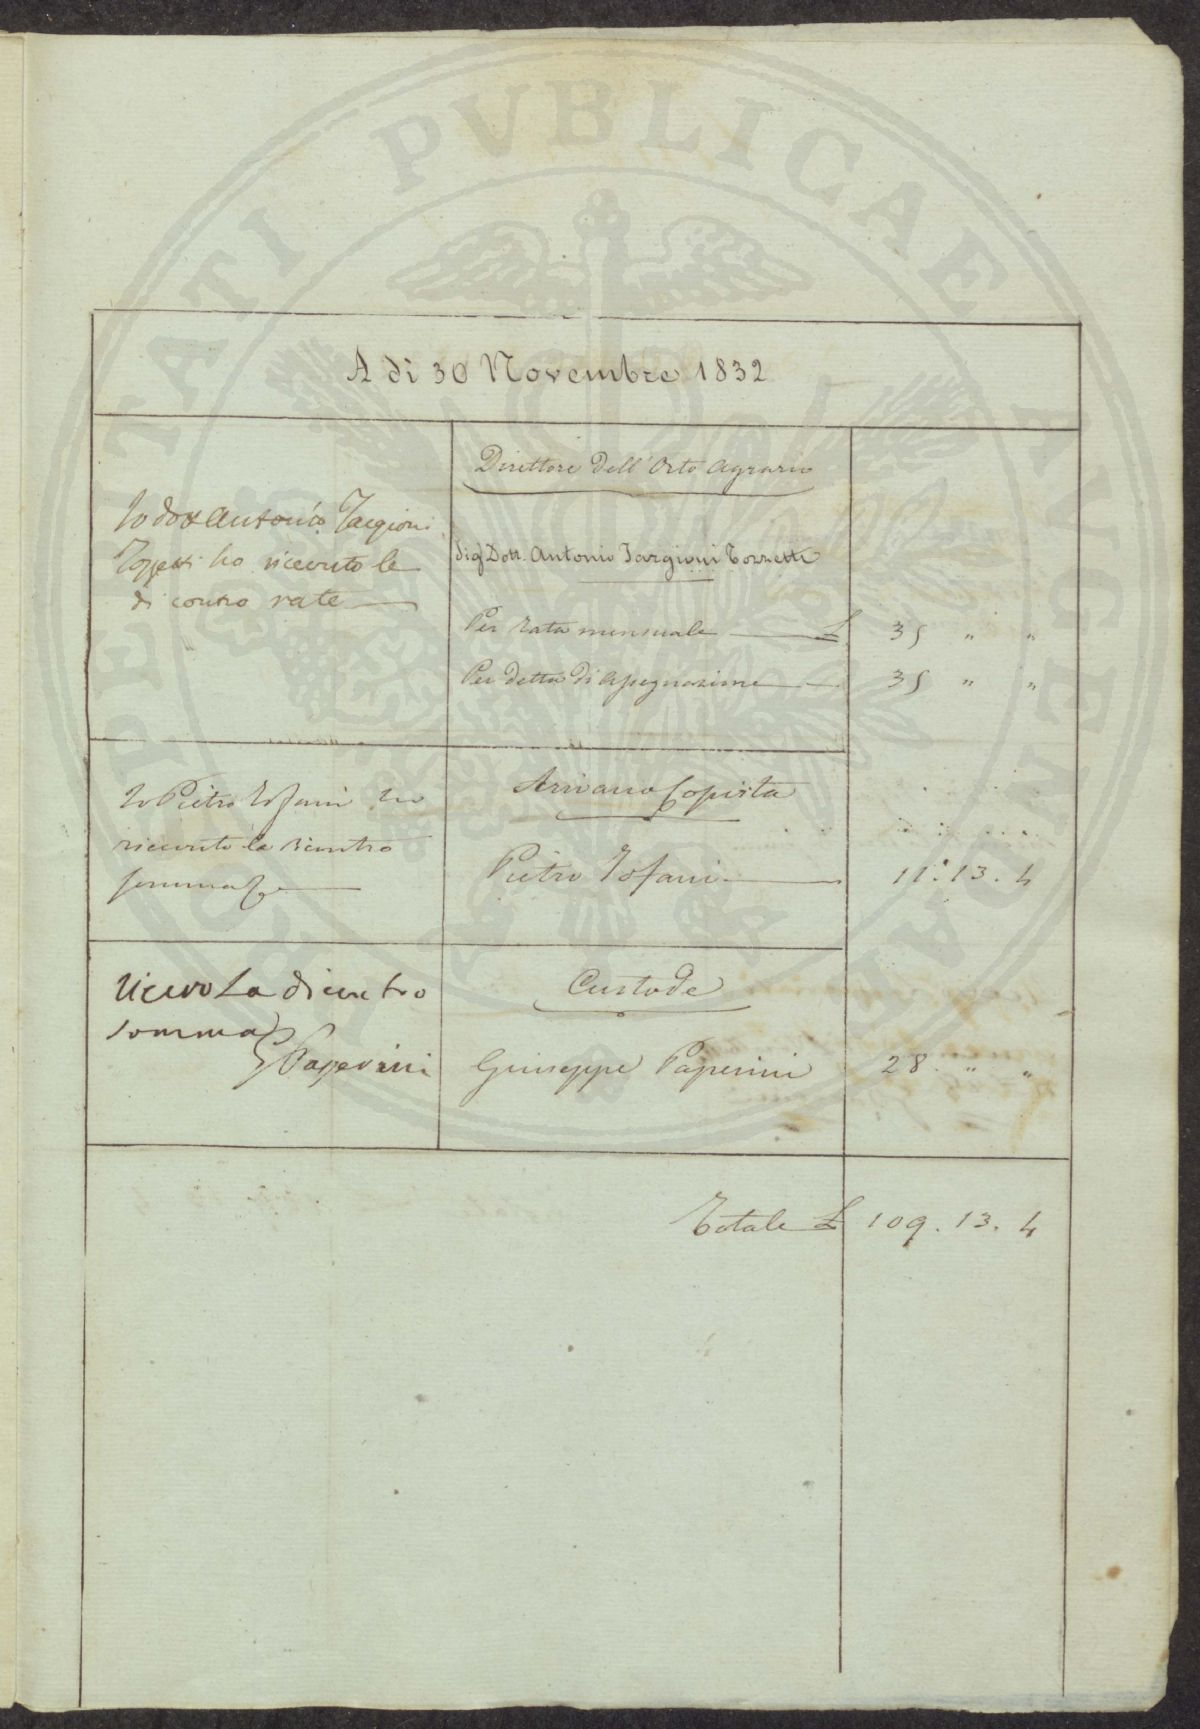 PROSPERITATI PVBLICAE AVGENDAE
A dì 30 Novembre 1832
Io dott Antonio Targioni
Tozzetti ho ricevuto le
di contro rate
Direttore dell'Orto Agrario
Sig Dott. Antonio Targioni Tozzetti
Per rata mensuale £ 35 " "
Per detta di Assegnazione 35 " "
Io Pietro Tofani ho
ricevuto la dicontro
somma
Scrivano Copista
Pietro Tofani 11. 13. 4
Ricevo La dicontro
somma
Paperini
Custode
Giuseppe Paperini 28 " "
Totale £ 109. 13. 4